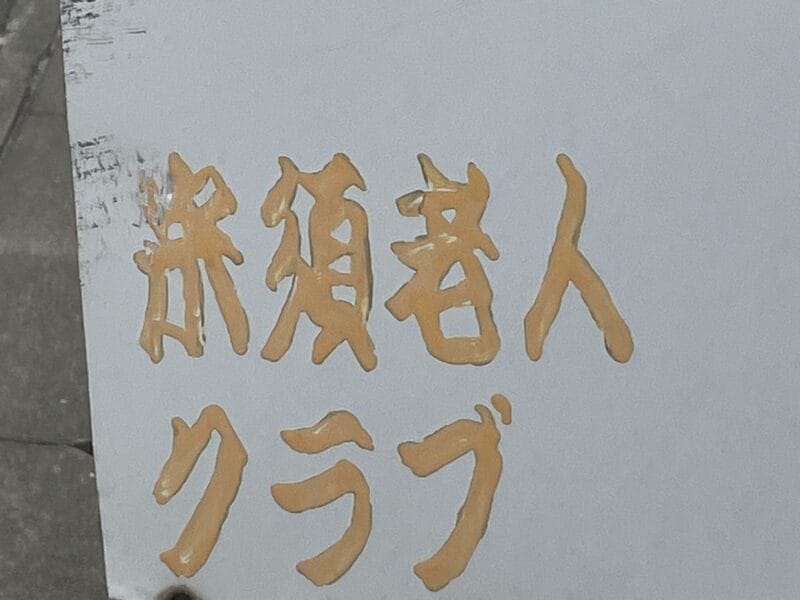 米須老人
クラブ